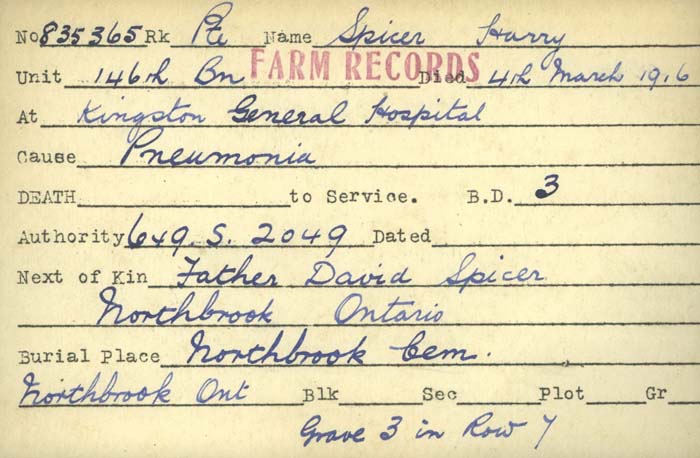 No 835365 Rk Pte Name Spicer Harry
Unit 146th Bn FARM RECORDS Died 4th March 1916
At Kingston General Hospital
Cause Pneumonia
DEATH to Service. B.D. 3
Authority 649. S. 2049 Dated
Next of Kin Father David Spicer
Northbrook Ontario
Burial Place Northbrook Cem.
Northbrook Ont Blk Sec Plot Gr
Grave 3 in Row 7